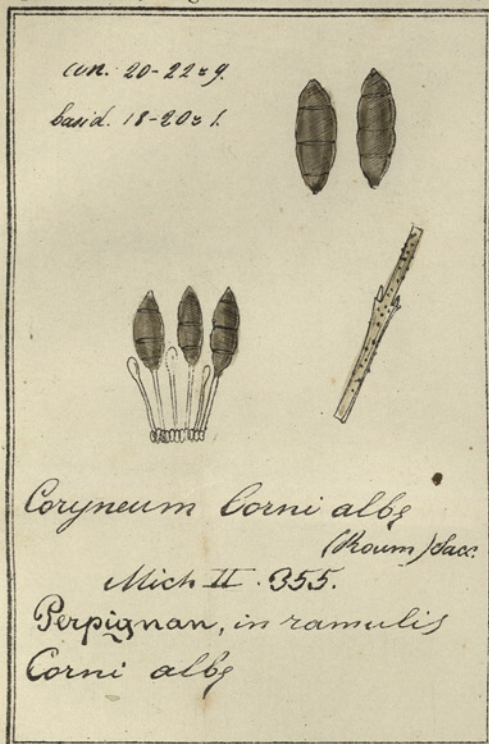 con. 20-22 = 9.
basid. 18-20 = 1.
Coryneum Corni albę
(Roum) Sacc.
Mich II. 355.
Perpignan, in ramulis
Corni albę